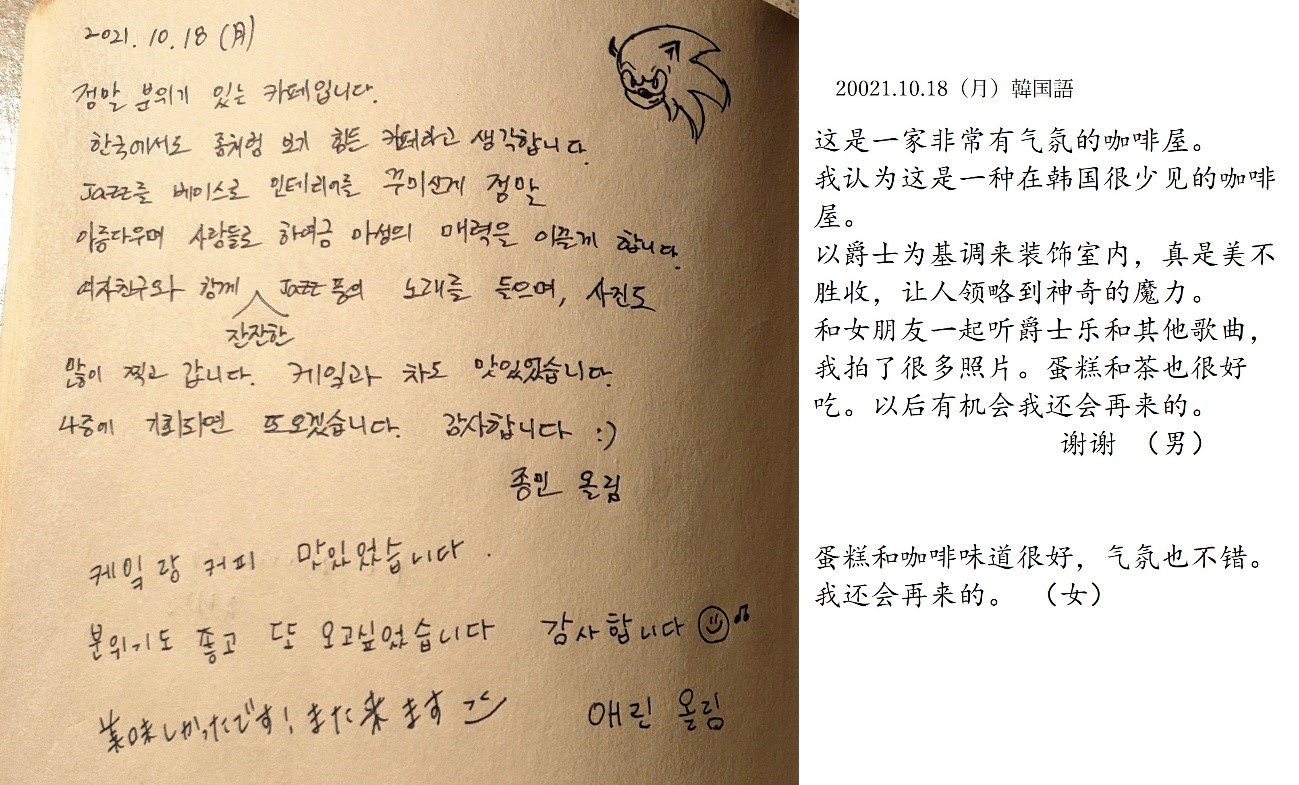 2021.10.18 (月)
정말 분위기 있는 카페입니다.
한국에서도 좀처럼 보기 힘든 카페라고 생각합니다.
Jazz를 베이스로 인테리어를 꾸미신게 정말
아름다우며 사람들로 하여금 마성의 매력을 이끌게 합니다.
여자친구와 함께 잔잔한 Jazz 풍의 노래를 들으며, 사진도
많이 찍고 갑니다. 케잌과 차도 맛있었습니다.
나중에 기회되면 또오겠습니다. 감사합니다 :)
종민 올림
케잌랑 커피 맛있었습니다.
분위기도 좋고 또 오고싶었습니다 감사합니다
美味しかったです! また来ます
애린 올림
20021.10.18（月）韓国語
这是一家非常有气氛的咖啡屋。
我认为这是一种在韩国很少见的咖啡
屋。
以爵士为基调来装饰室内，真是美不
胜收，让人领略到神奇的魔力。
和女朋友一起听爵士乐和其他歌曲，
我拍了很多照片。蛋糕和茶也很好
吃。以后有机会我还会再来的。
谢谢 （男）
蛋糕和咖啡味道很好，气氛也不错。
我还会再来的。 （女）